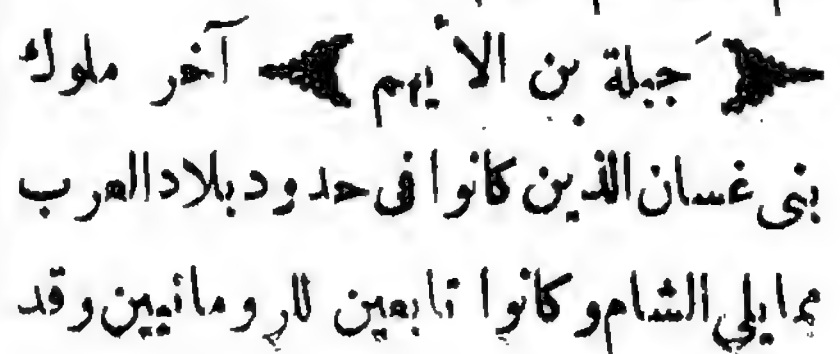 جبلة بن الأيهم آخر ملوك
بنى غسان الذين كانوا فى حدود بلاد العرب
مما يلي الشام وكانوا تابعين للرومانيين وقد